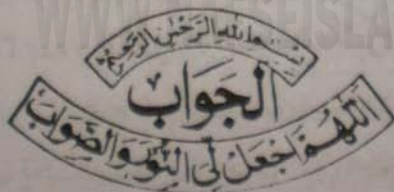 بسم الله الرحمن الرحيم
الجواب
اَللّٰهُمَّ اجْعَلْ لِّی النُّوْرَ وَالصَّوَابَ